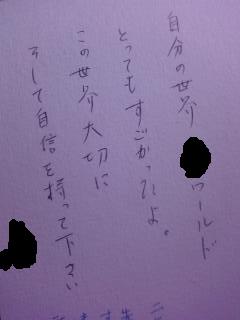 自分の世界 ワールド
とってもすごかったよ。
この世界大切に
そして自信を持って下さい